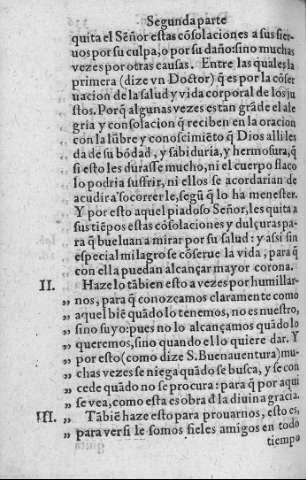 Segunda parte
quita el Señor estas cõsolaciones a sus sier-
uos por su culpa, o por su daño: sino muchas
vezes por otras causas. Entre las quales la
primera (dize vn Doctor) q̃ es por la cõser
uacion de la salud y vida corporal de los ju
stos. Porq̃ algunas vezes estan grãde el ale
gria y consolacion q̃ reciben en la oracion
con la lũbre y conoscimiẽto q̃ Dios alli les
da de su bõdad, y sabiduria, y hermosura, q̃
si esto les durasse mucho, ni el cuerpo flaco
lo podria suffrir, ni ellos se acordarian de
acudir a socorrerle, segũ q̃ lo ha menester.
Y por esto aquel piadoso Señor, les quita a
sus tiẽpos estas cõsolaciones y dulçuras pa-
ra q̃ bueluan a mirar por su salud: y assi sin
especial milagro se cõserue la vida, para q̃
con ella puedan alcançar mayor corona.
II. Hazelo tãbien esto a vezes por humillar-
„ nos, para q̃ conozcamos claramente como
„ aquel biẽ quãdo lo tenemos, no es nuestro,
„ sino suyo: pues no lo alcançamos quãdo lo
„ queremos, sino quando el lo quiere dar. Y
„ por esto (como dize S. Buenauentura) mu-
„ chas vezes se niega quãdo se busca, y se con
„ cede quãdo no se procura: para q̃ por aqui
„ se vea, como esta es obra d̃ la diuina gracia.
III. Tãbiẽ haze esto para prouarnos, esto es,
„ para ver si le somos fieles amigos en todo
tiempo